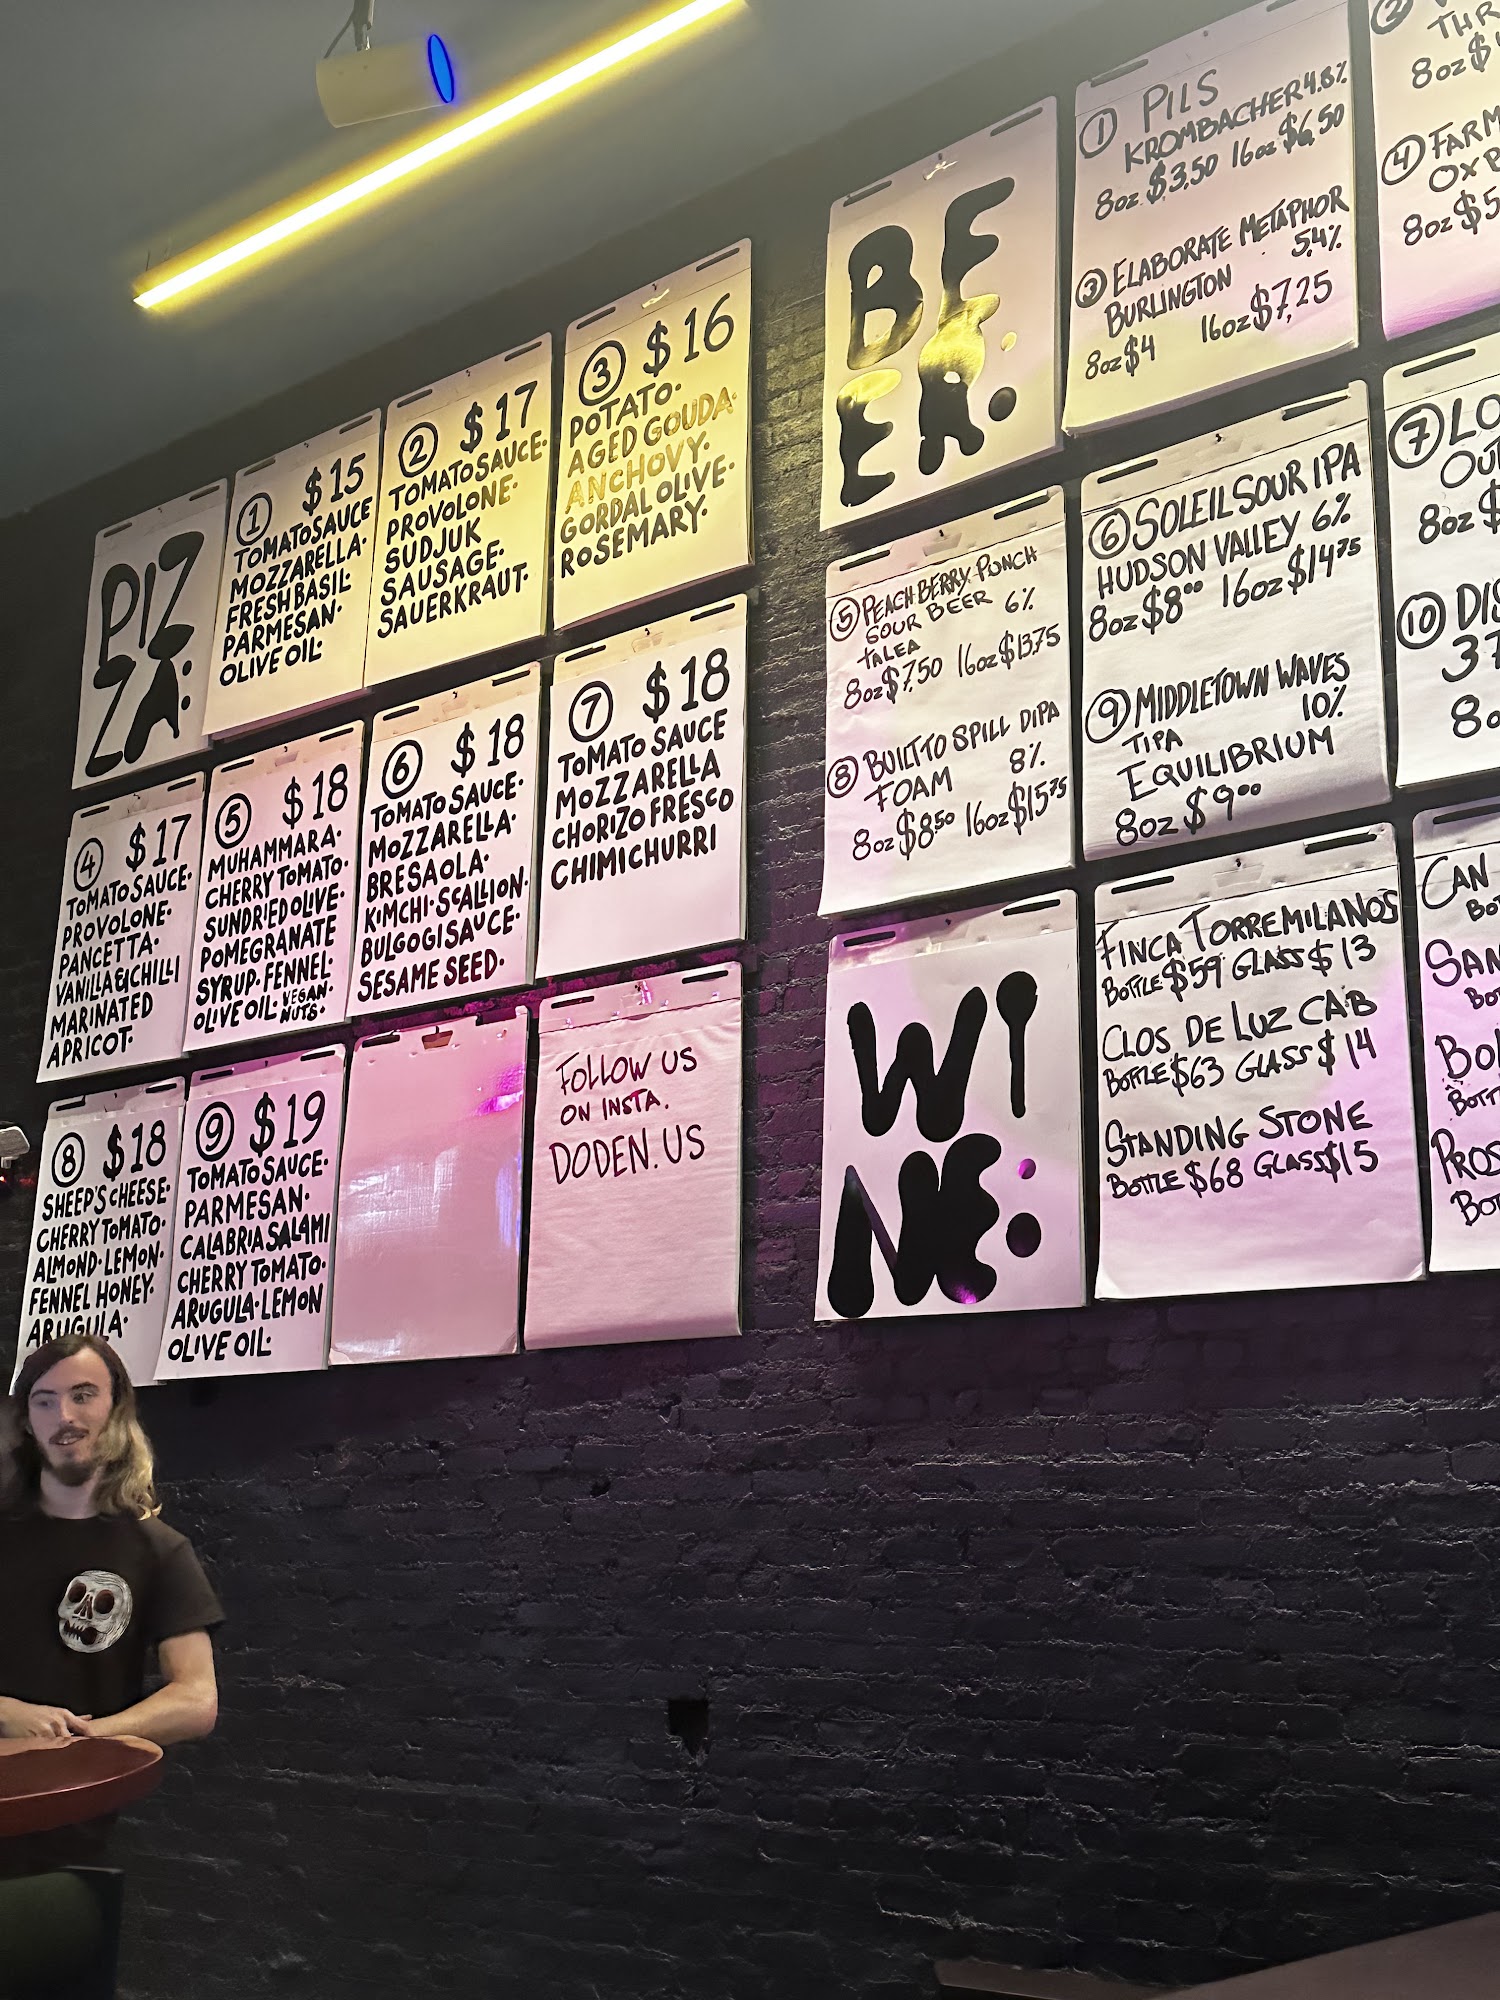 PIZ
ZA:
① $15
TOMATO SAUCE
MOZZARELLA·
FRESH BASIL·
PARMESAN·
OLIVE OIL·
② $17
TOMATO SAUCE·
PROVOLONE·
SUDJUK
SAUSAGE·
SAUERKRAUT·
③ $16
POTATO·
AGED GOUDA·
ANCHOVY·
GORDAL OLIVE·
ROSEMARY·
④ $17
TOMATO SAUCE·
PROVOLONE·
PANCETTA·
VANILLA & CHILLI
MARINATED
APRICOT·
⑤ $18
MUHAMMARA·
CHERRY TOMATO·
SUNDRIED OLIVE·
POMEGRANATE
SYRUP· FENNEL·
OLIVE OIL· VEGAN·
NUTS·
⑥ $18
TOMATO SAUCE·
MOZZARELLA·
BRESAOLA·
KIMCHI· SCALLION·
BULGOGI SAUCE·
SESAME SEED·
⑦ $18
TOMATO SAUCE
MOZZARELLA
CHORIZO FRESCO
CHIMICHURRI
⑧ $18
SHEEP'S CHEESE·
CHERRY TOMATO·
ALMOND· LEMON·
FENNEL HONEY·
ARUGULA·
⑨ $19
TOMATO SAUCE·
PARMESAN·
CALABRIA SALAMI
CHERRY TOMATO·
ARUGULA· LEMON
OLIVE OIL·
FOLLOW US
ON INSTA.
DODEN.US
BE
ER:
① PILS
KROMBACHER 4.8%
8oz $3.50 16oz $6,50
③ ELABORATE METAPHOR
BURLINGTON 5,4%
8oz $4 16oz $7,25
②
THR
8oz $
④ FARM
OX
8oz $5
⑤ PEACH BERRY PUNCH
SOUR BEER 6%
TALEA
8oz $7,50 16oz $13.75
⑧ BUILT TO SPILL DIPA
FOAM 8%
8oz $8.50 16oz $15.75
⑥ SOLEIL SOUR IPA
HUDSON VALLEY 6%
8oz $8.00 16oz $14.75
⑨ MIDDLETOWN WAVES
TIPA 10%
EQUILIBRIUM
8oz $9.00
⑦ LO
OU
8oz $
⑩ DIS
37
8o
WI
NE:
FINCA TORREMILANOS
BOTTLE $59 GLASS $13
CLOS DE LUZ CAB
BOTTLE $63 GLASS $14
STANDING STONE
BOTTLE $68 GLASS $15
CAN
BOT
SAN
BOT
BO
BOTT
PROS
BOT